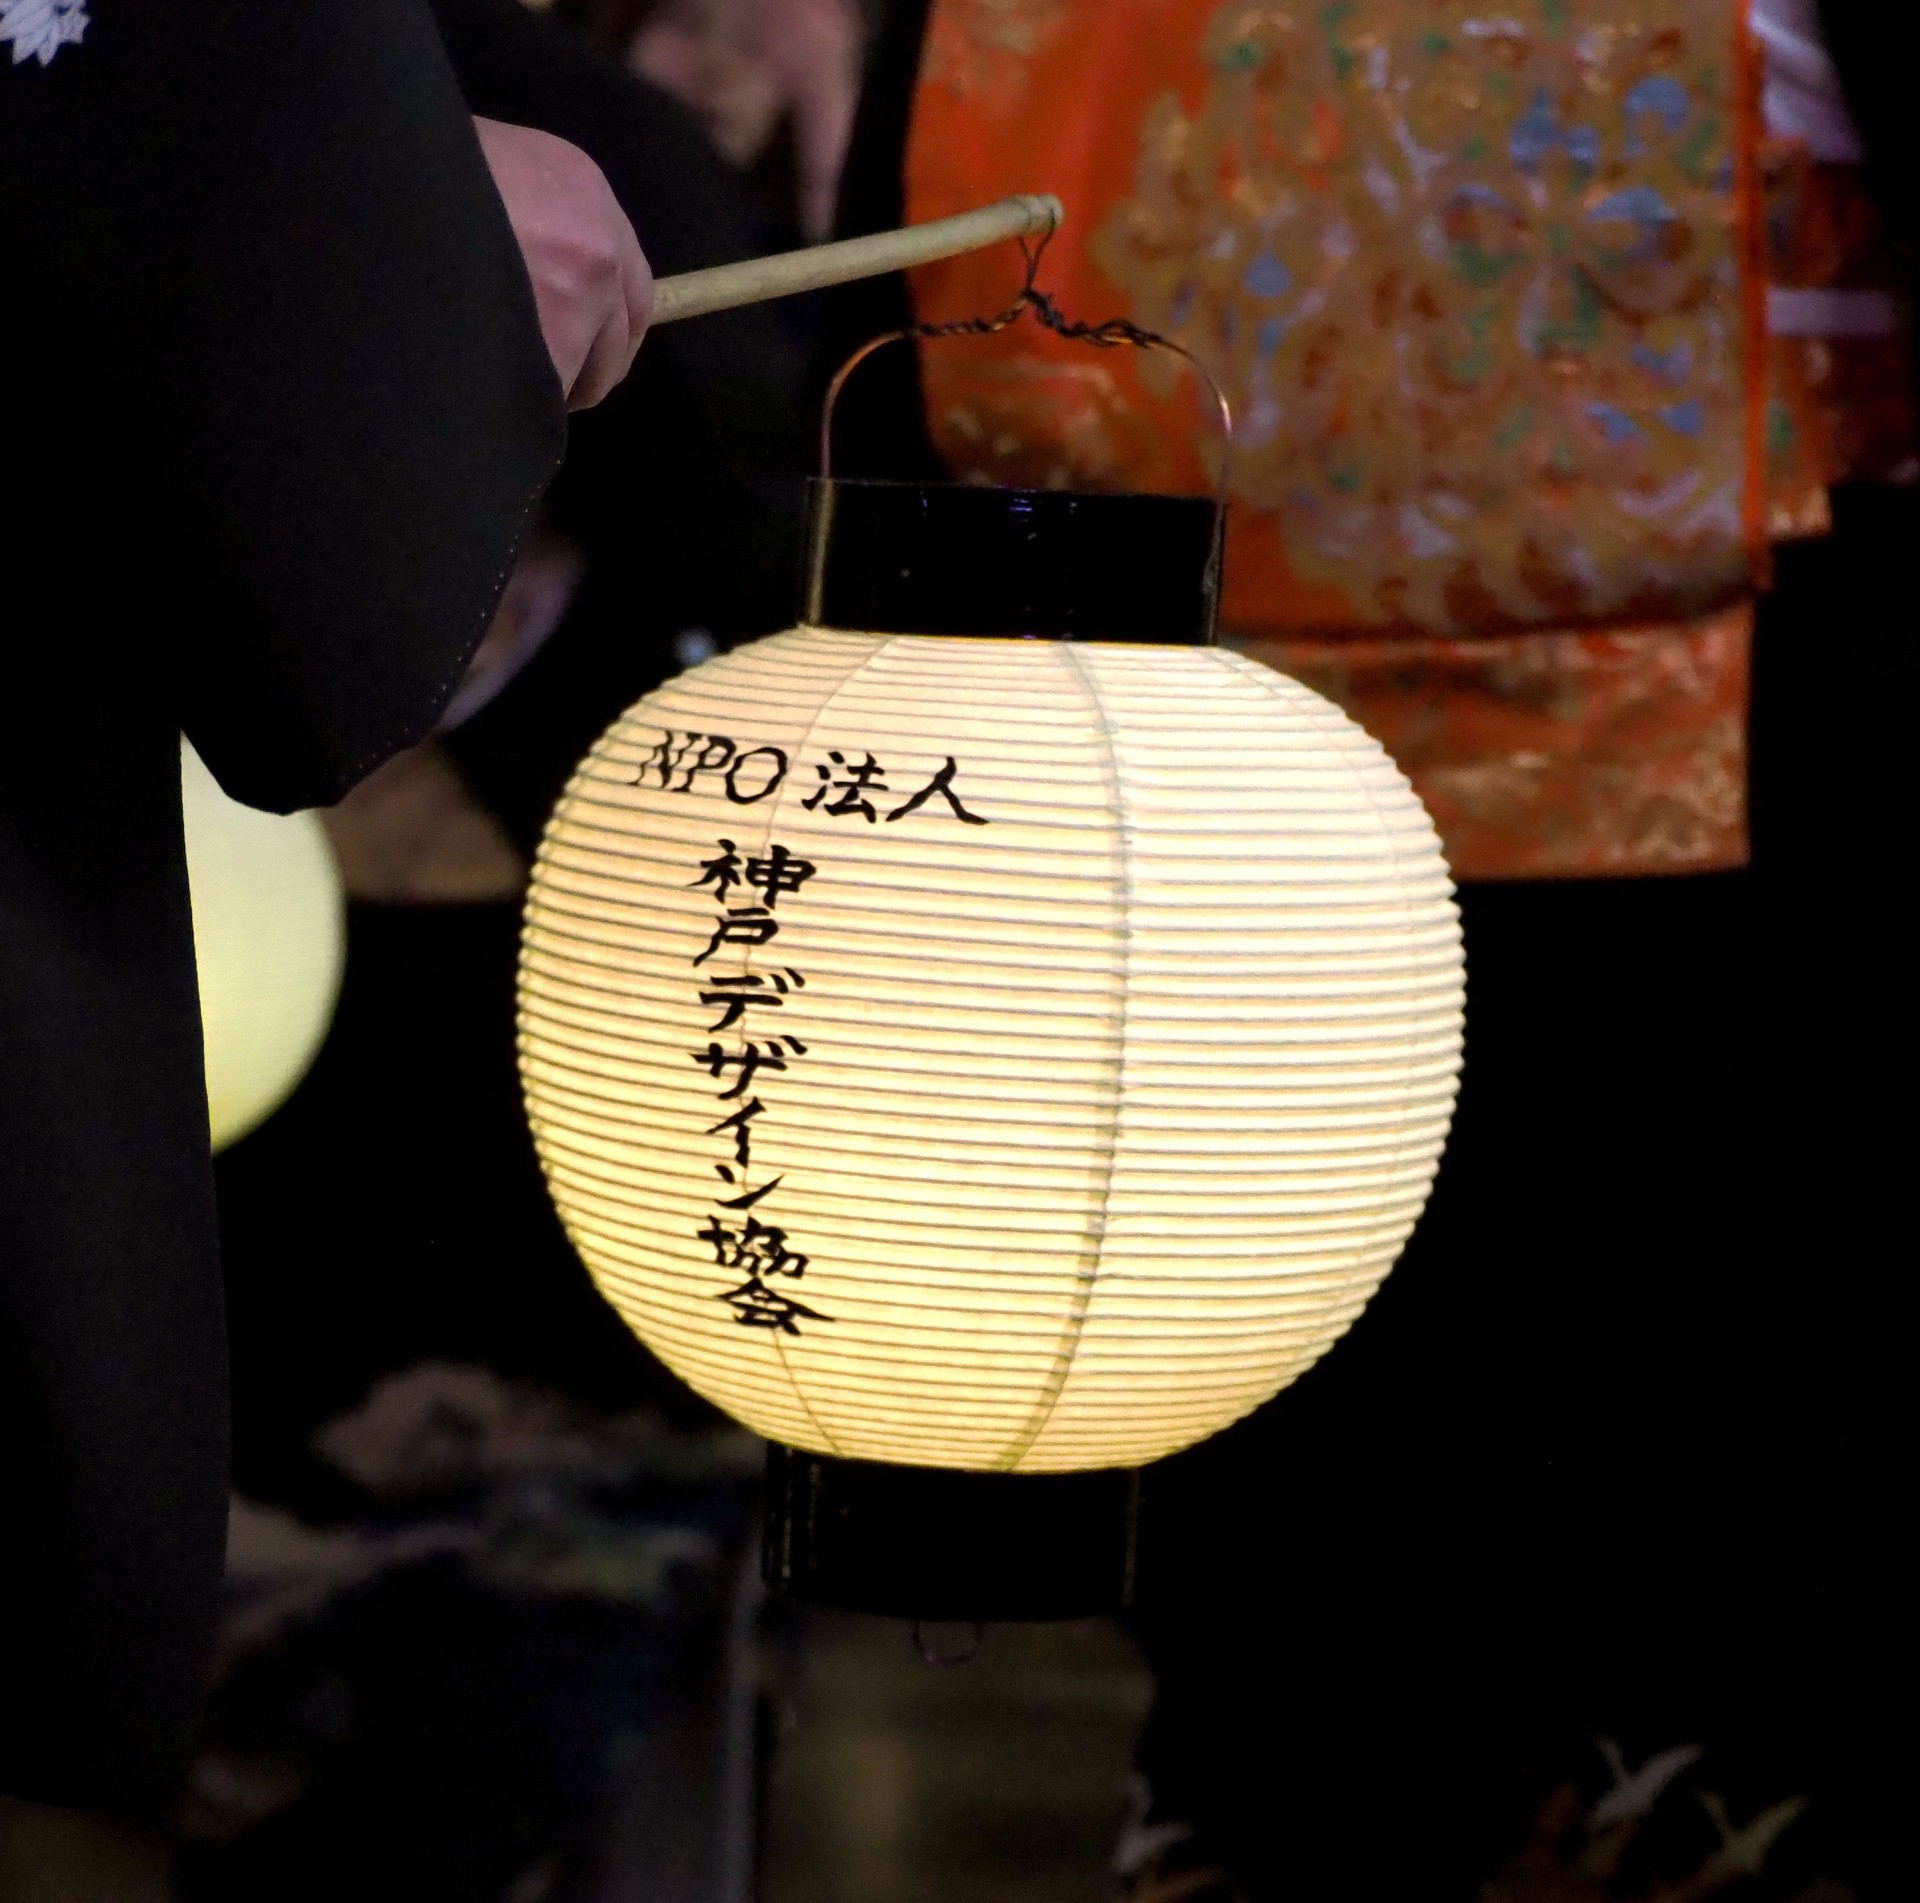 NPO法人
神戸デザイン協会